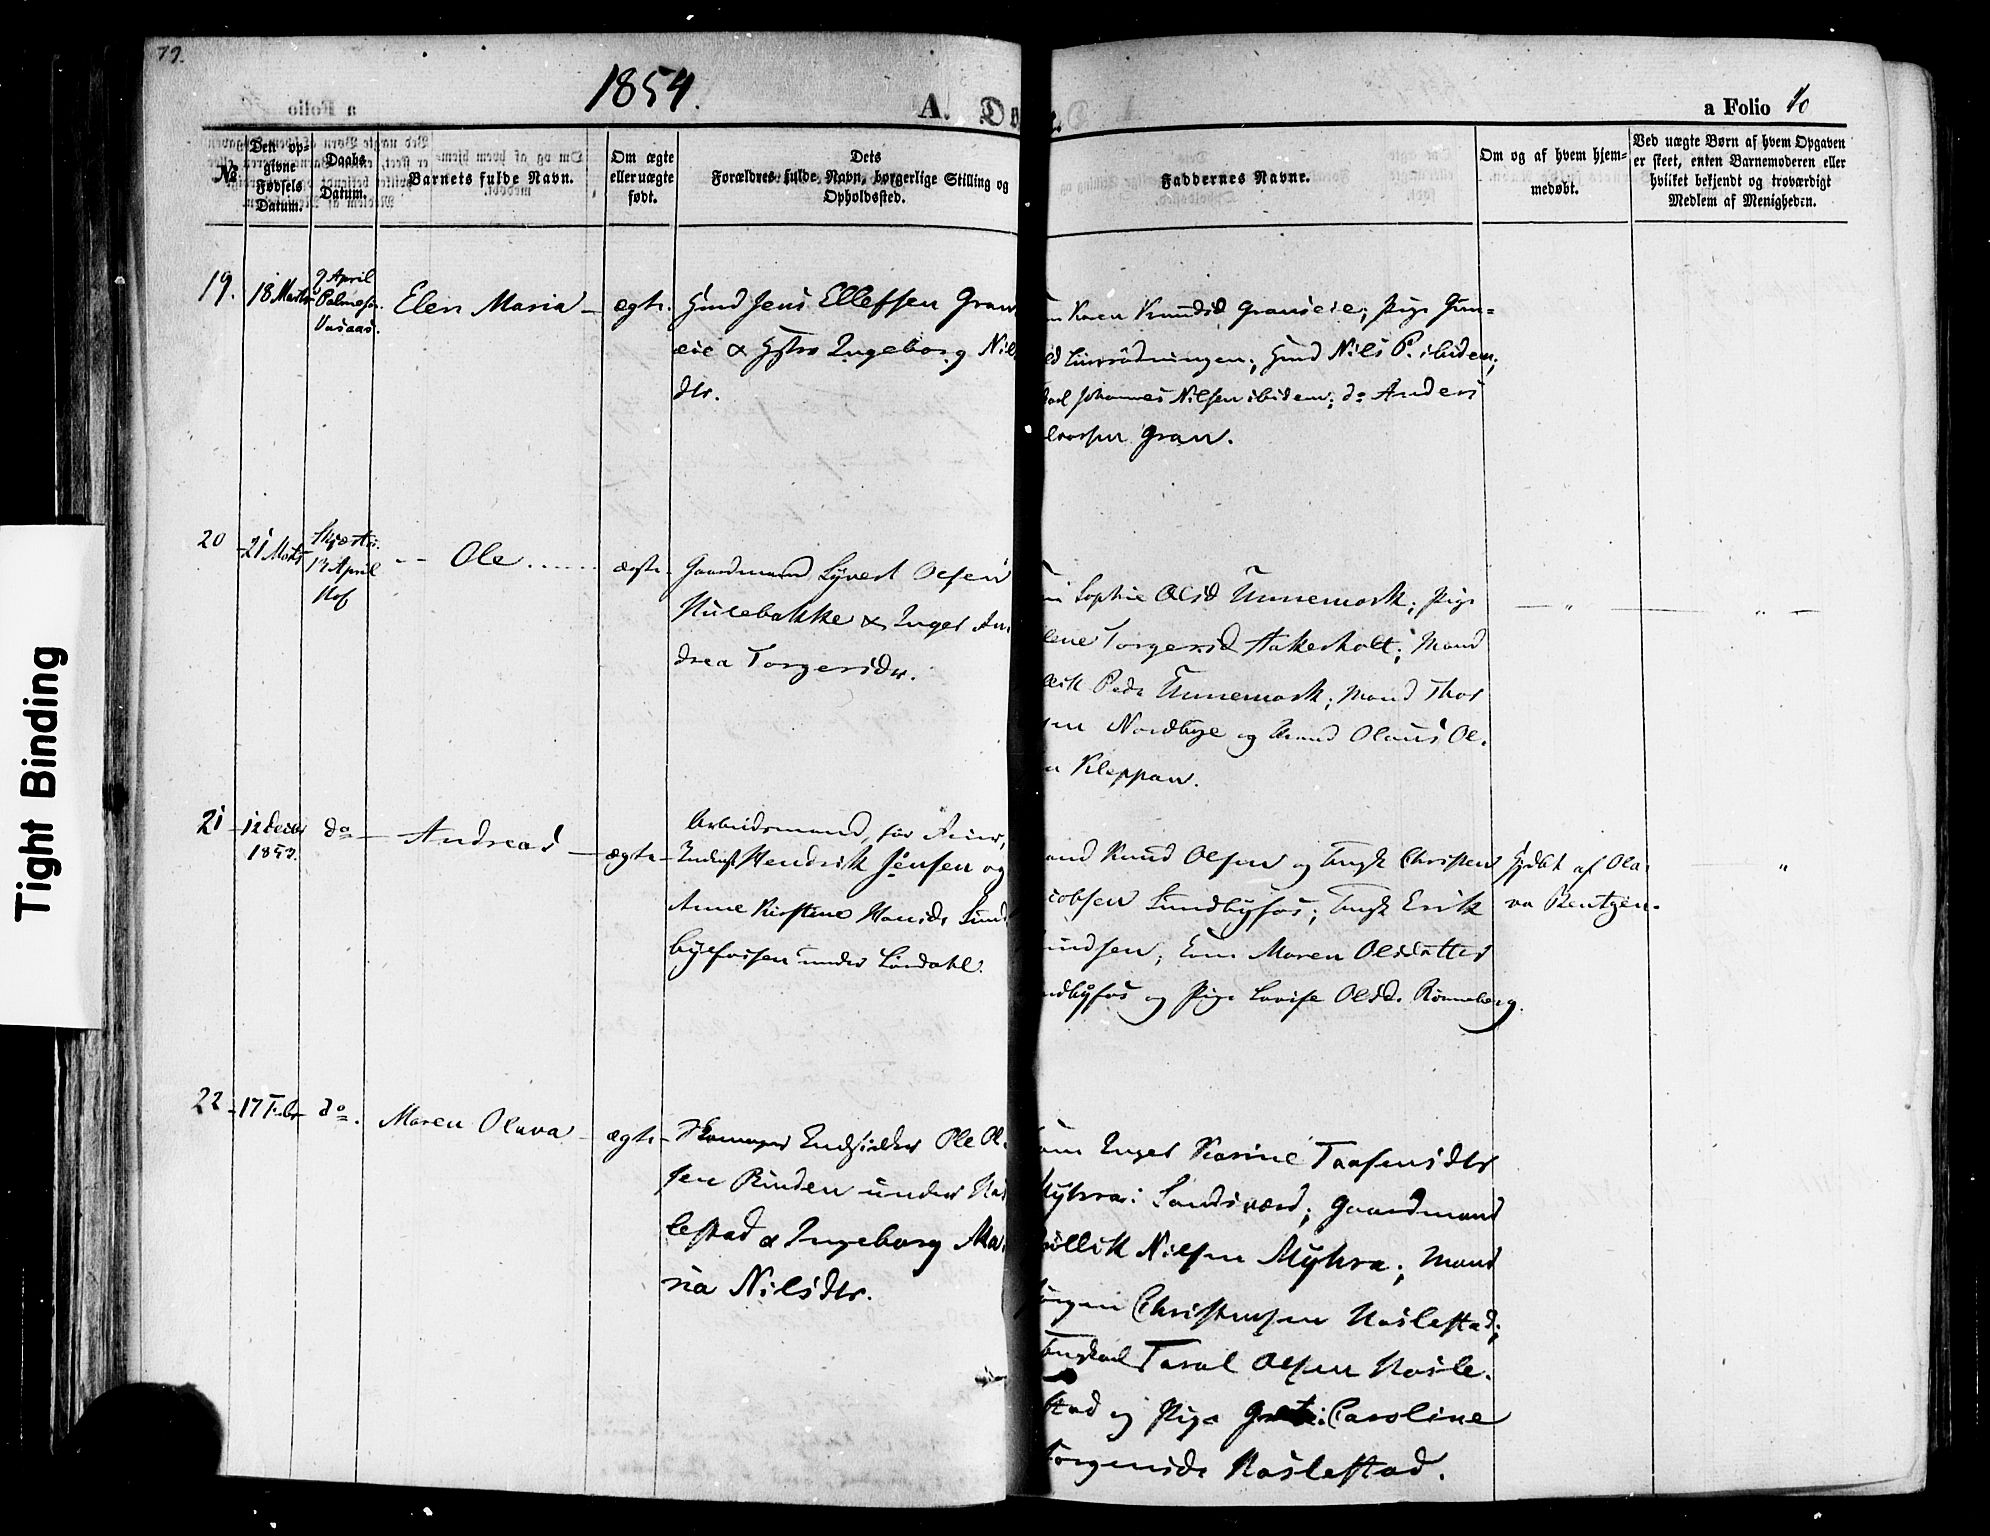 79.
1854.
A. D
a Folio 10
№
Den op-
givne
Fødsels
Datum.
Daabs
Datum.
Barnets fulde Navn.
Om ægte
eller uægte
født.
Dets
Forældres fulde Navn, borgerlige Stilling og
Opholdssted.
Faddernes Navne.
Om og af hvem hjem-
medøbt.
Ved uægte Børn af hvem Opgaven
er skeet, enten Barnemoderen eller
hvilket bekjendt og troværdigt
Medlem af Menigheden.
19.
18 Marts
9 April
Palmesø.
Vasaas.
Elen Maria
ægte.
Hmd Jens Ellefsen Gran
eie & Hstr Ingeborg Nil
dtr.
Karen Knudsd. Granseie; Pige Gun-
Hmd Nils P. ibidem;
Johannes Nilsen ibidem; do Anders
Gran.
20
21 Marts
Skjærts.
13 April
Hof
Ole
ægte
Gaardmand Syvert Olsen
Hulebakke & Inger An
drea Torgersdr.
Sophie Olsd Unnemork; Pige
lene Torgersd Aakerholt; Mand
Peds Unnemork; Mand Thor
sen Nordbye og Mand Olaus Ol-
n Kleppan.
21
12 Decbr
1853.
do
Andreas
ægte
Arbeidsmand, før
Inderst Hendrik Jensen og
Anne Kirstine Hansdr Sund
byefossen under Sørdahl.
and Knud Olsen og Ungk Christen
cobsen Sundbyfos; Ungk Erik
undsen; Em. Maren Olsdatter
ndbyfos og Pige Lovise Olsd. Rønneberg.
Hjdbt af Ola-
va Bentzen.
22
17 Febr
do.
Maren Olava
ægte
Skomager Indsidder Ole Ol-
sen Rinden under Has
lestad & Ingeborg Ma-
ria Nilsdtr.
Inger Karine Taafensdtr
Myhra i Sandsværd; Gaardmand
Nilsen Myhra; Mand
ørgen Christensen Haslestad;
Ungkarl Taral Olsen Hasle-
stad og Pige Caroline
Torgersdr Haslestad.
Tight Binding